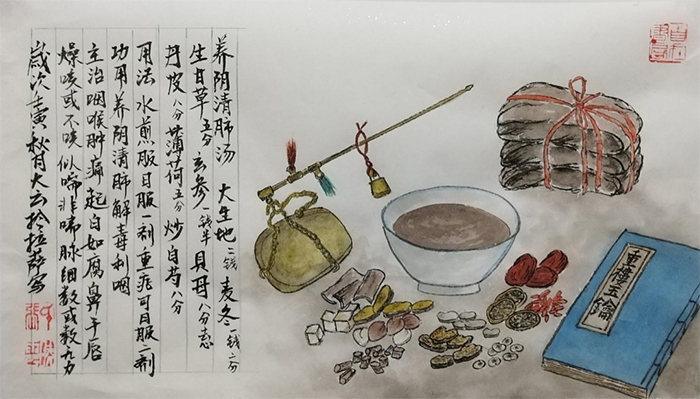 养阴清肺汤 大生地二钱 麦冬一钱二分
生甘草五分 玄参一钱半 贝母八分去心
丹皮八分 薄荷五分 炒白芍八分
用法 水煎服日服一剂重症可日服二剂
功用养阴清肺解毒利咽
主治咽喉肿痛起白如腐鼻干唇
燥咳或不咳似喘非喘脉细数或数无力
岁次壬寅秋月大云於拉萨写
重樓玉鑰